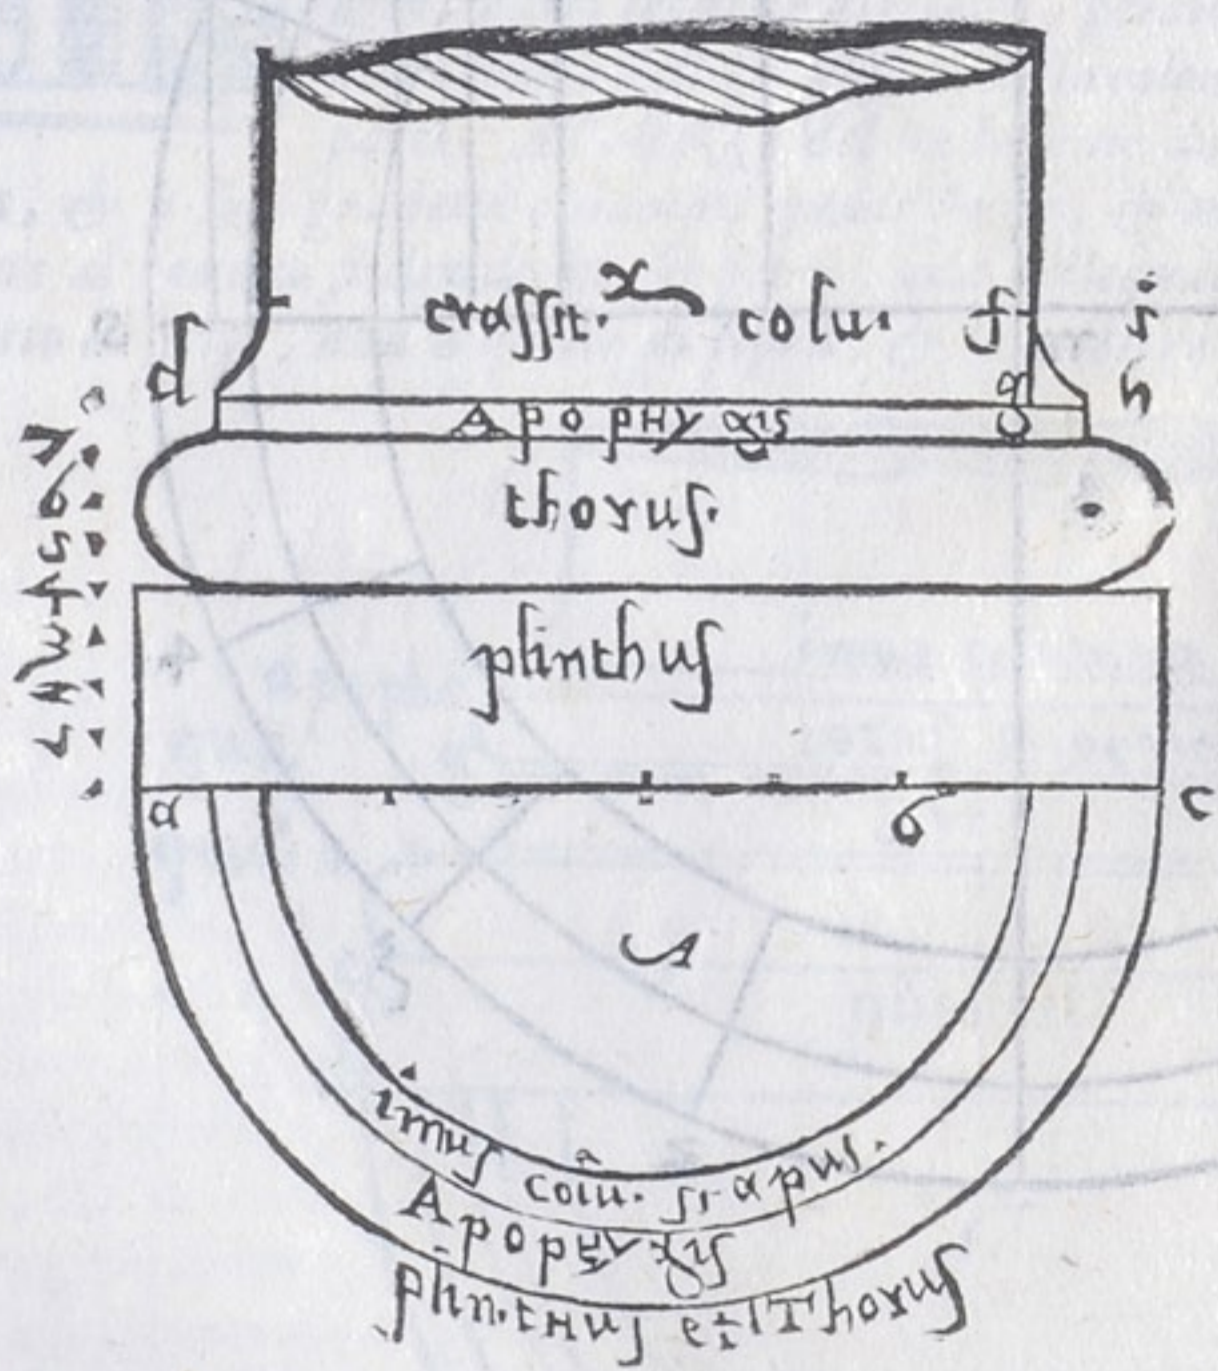 crassit. x colu.
d
f
g
h
Apophygis
thorus.
plinthus
8
7
6
5
4
3
2
1
a
b
c
A
imus colu. scapus.
Apophygis
plinthus et Thorus